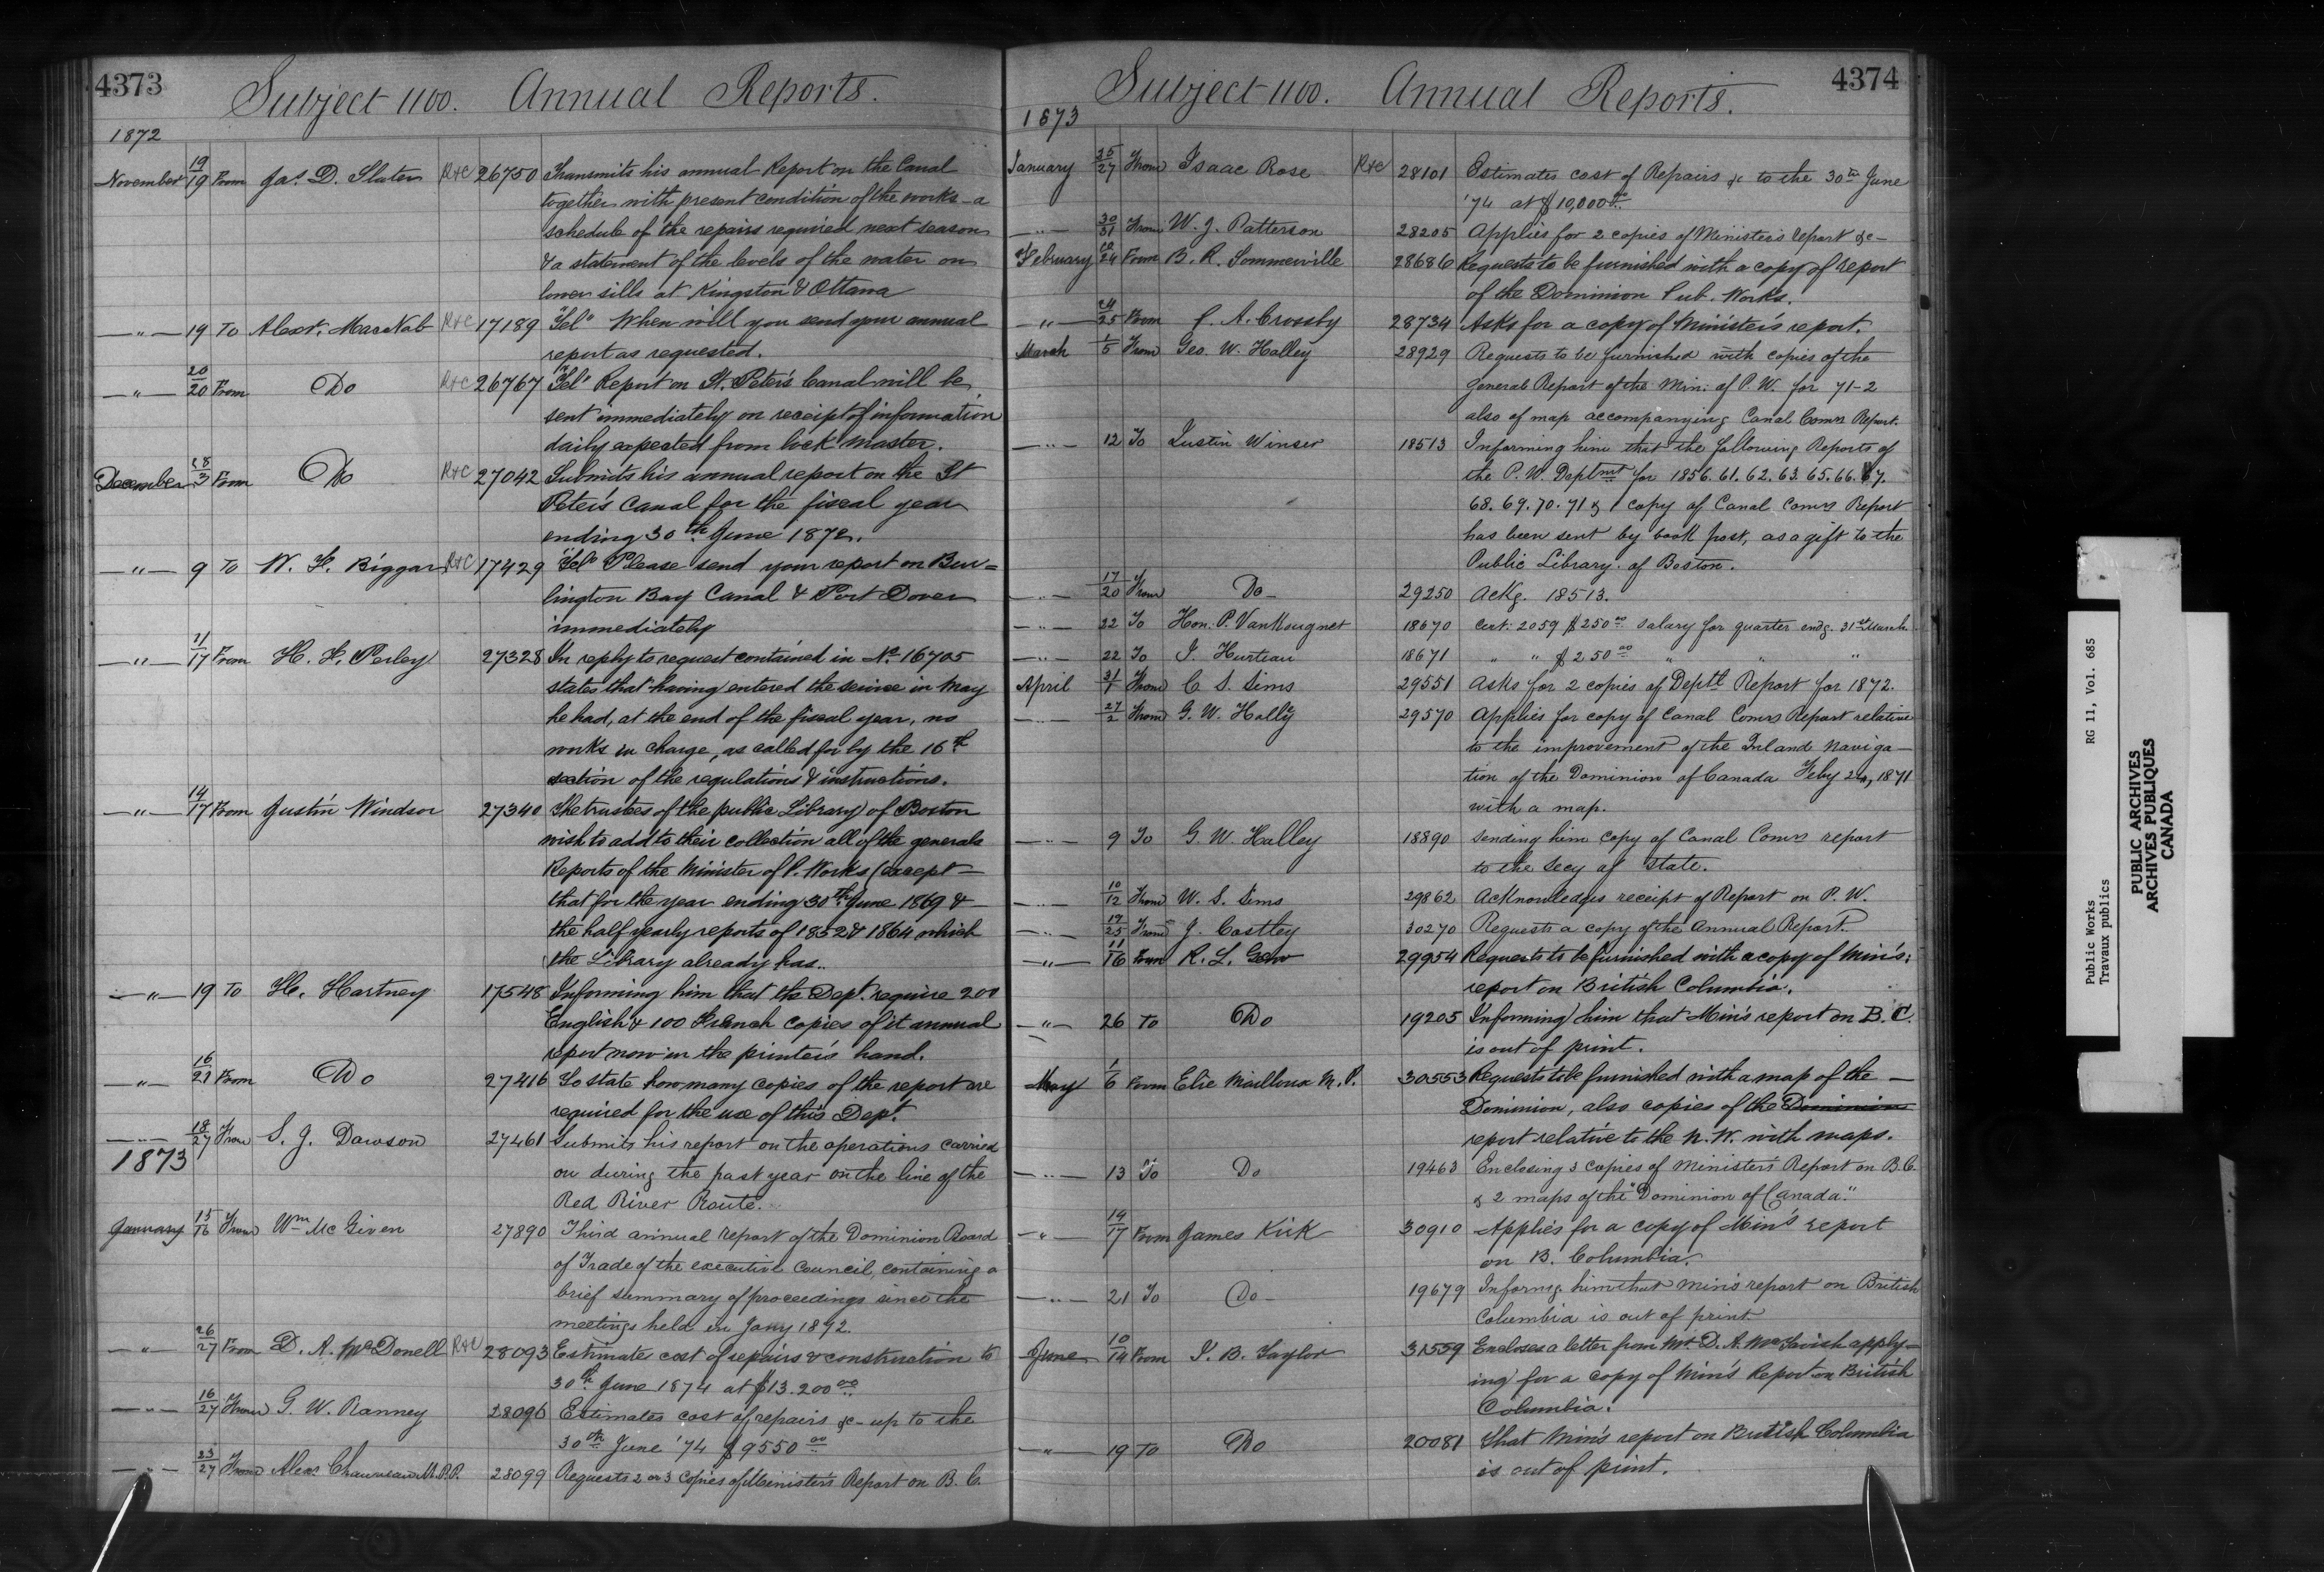 4373
Subject 1100. Annual Reports.
1872
November 19/19 From Jas. D. Slater R&C 26750 Transmits his annual Report on the Canal
together with present condition of the works – a
schedule of the repairs required next season
& a statement of the levels of the water on
lower sills at Kingston & Ottawa
—"— 19 To Alexr. MacNab R&C 17189 Tel. When will you send your annual
report as requested.
—"— 20/20 From Do R&C 26767 Tel. Report on St. Peter's Canal will be
sent immediately on receipt of information
daily expected from lock master.
December 28/3 From Do R&C 27042 Submits his annual report on the St
Peter's Canal for the fiscal year
ending 30th June 1872.
—"— 9 To W. F. Biggar R&C 17429 Tel. Please send your report on Bur=
lington Bay Canal & Port Dover
immediately
—"— 11/17 From H. F. Perley 27328 In reply to request contained in No. 16705
states that having entered the service in May
he had, at the end of the fiscal year, no
works in charge, as called for by the 16th
section of the regulations & instructions.
—"— 14/17 From Justin Windsor 27340 The trustees of the public Library of Boston
wish to add to their collection all of the general
Reports of the Minister of P. Works (except –
that for the year ending 30th June 1869 &
the half yearly reports of 1852 & 1864 which
the Library already has..
—"— 19 To H. Hartney 17548 Informing him that the Dept. require 200
English & 100 French copies of it annual
report now in the printer's hand.
—"— 16/21 From Do 27416 To state how many copies of the report are
required for the use of this Dept.
—"— 18/27 From S. J. Dawson 27461 Submits his report on the operations carried
1873
on during the past year on the line of the
Red River Route.
January 15/16 From Wm McGiven 27890 Third annual report of the Dominion Board
of Trade of the executive Council, containing a
brief summary of proceedings since the
meetings held in Jany 1872.
—"— 26/27 From D. A. McDonell R&C 28093 Estimates cost of repairs & construction to
30th June 1874 at $13.200 00
—"— 16/27 From G. W. Ranney 28096 Estimates cost of repairs &c – up to the
30th June '74 $9550 00
—"— 23/27 From Alexr Chauveau M.P.P. 28099 Requests 2 or 3 copies of Minister's Report on B. C.
4374
Subject 1100. Annual Reports.
1873
January 25/27 From Isaac Rose R&C 28101 Estimates cost of Repairs &c to the 30th June
'74 at $10,000 00
—"— 30/31 From W. J. Patterson 28205 Applies for 2 copies of Minister's report &c –
February 12/24 From B. R. Sommerville 28686 Requests to be furnished with a copy of report
of the Dominion Pub. Works.
—"— 24/25 From F. A. Crossby 28734 Asks for a copy of Minister's report.
March 1/5 From Geo. W. Halley 28929 Requests to be furnished with copies of the
general Report of the Min. of P. W. for 71-2
also of map accompanying Canal Comrs Report.
—"— 12 To Justin Winser 18513 Informing him that the following Reports of
the P. W. Deptmt for 1856. 61. 62. 63. 65. 66. 67.
68. 69. 70. 71 & 1 copy of Canal Comrs Report
has been sent by book post, as a gift to the
Public Library. of Boston.
—"— 17/20 From Do – 29250 Ackg. 18513.
—"— 22 To Hon. P. VanKougnet 18670 Cert: 2059 $250 00 salary for quarter endg. 31st March
—"— 22 To J. Hurteau 18671 " " $250 00 " " "
April 31/1 From C. S. Sims 29551 Asks for 2 copies of Deptl Report for 1872.
—"— 27/2 From G. W. Hally 29570 Applies for copy of Canal Comrs Report relative
to the improvement of the Inland Naviga–
tion of the Dominion of Canada Feby 24, 1871
with a map.
—"— 9 To G. W. Halley 18890 sending him copy of Canal Comrs report
to the Secy of State.
—"— 10/12 From W. S. Sims 29862 Acknowledges receipt of Report on P. W.
—"— 19/25 From J. Costley 30270 Requests a copy of the Annual Report.
—"— 11/16 From R. L. 29954 Requests to be furnished with a copy of Min's:
report on British Columbia.
—"— 26 To Do 19205 Informing him that Min's report on B. C.
is out of print.
May 1/6 From Elie Mailloux M. P. 30553 Requests to be furnished with a map of the –
Dominion, also copies of the Dominion
report relative to the N. W. with maps.
—"— 13 To Do 19463 Enclosing 3 copies of Minister's Report on B. C.
& 2 maps of the "Dominion of Canada."
—"— 14/17 From James Kirk 30910 Applies for a copy of Min's report
on B. Columbia.
—"— 21 To Do – 19679 Informg. him that Min's report on British
Columbia is out of print
June 10/14 From J. B. Taylor 31559 Encloses a letter from Mr D. A. McTavish apply–
ing for a copy of Min's Report on British
Columbia.
—"— 19 To Do 20081 That Min's report on British Columbia
is out of print.
Public Works RG 11, Vol. 685
Travaux publics
PUBLIC ARCHIVES
ARCHIVES PUBLIQUES
CANADA